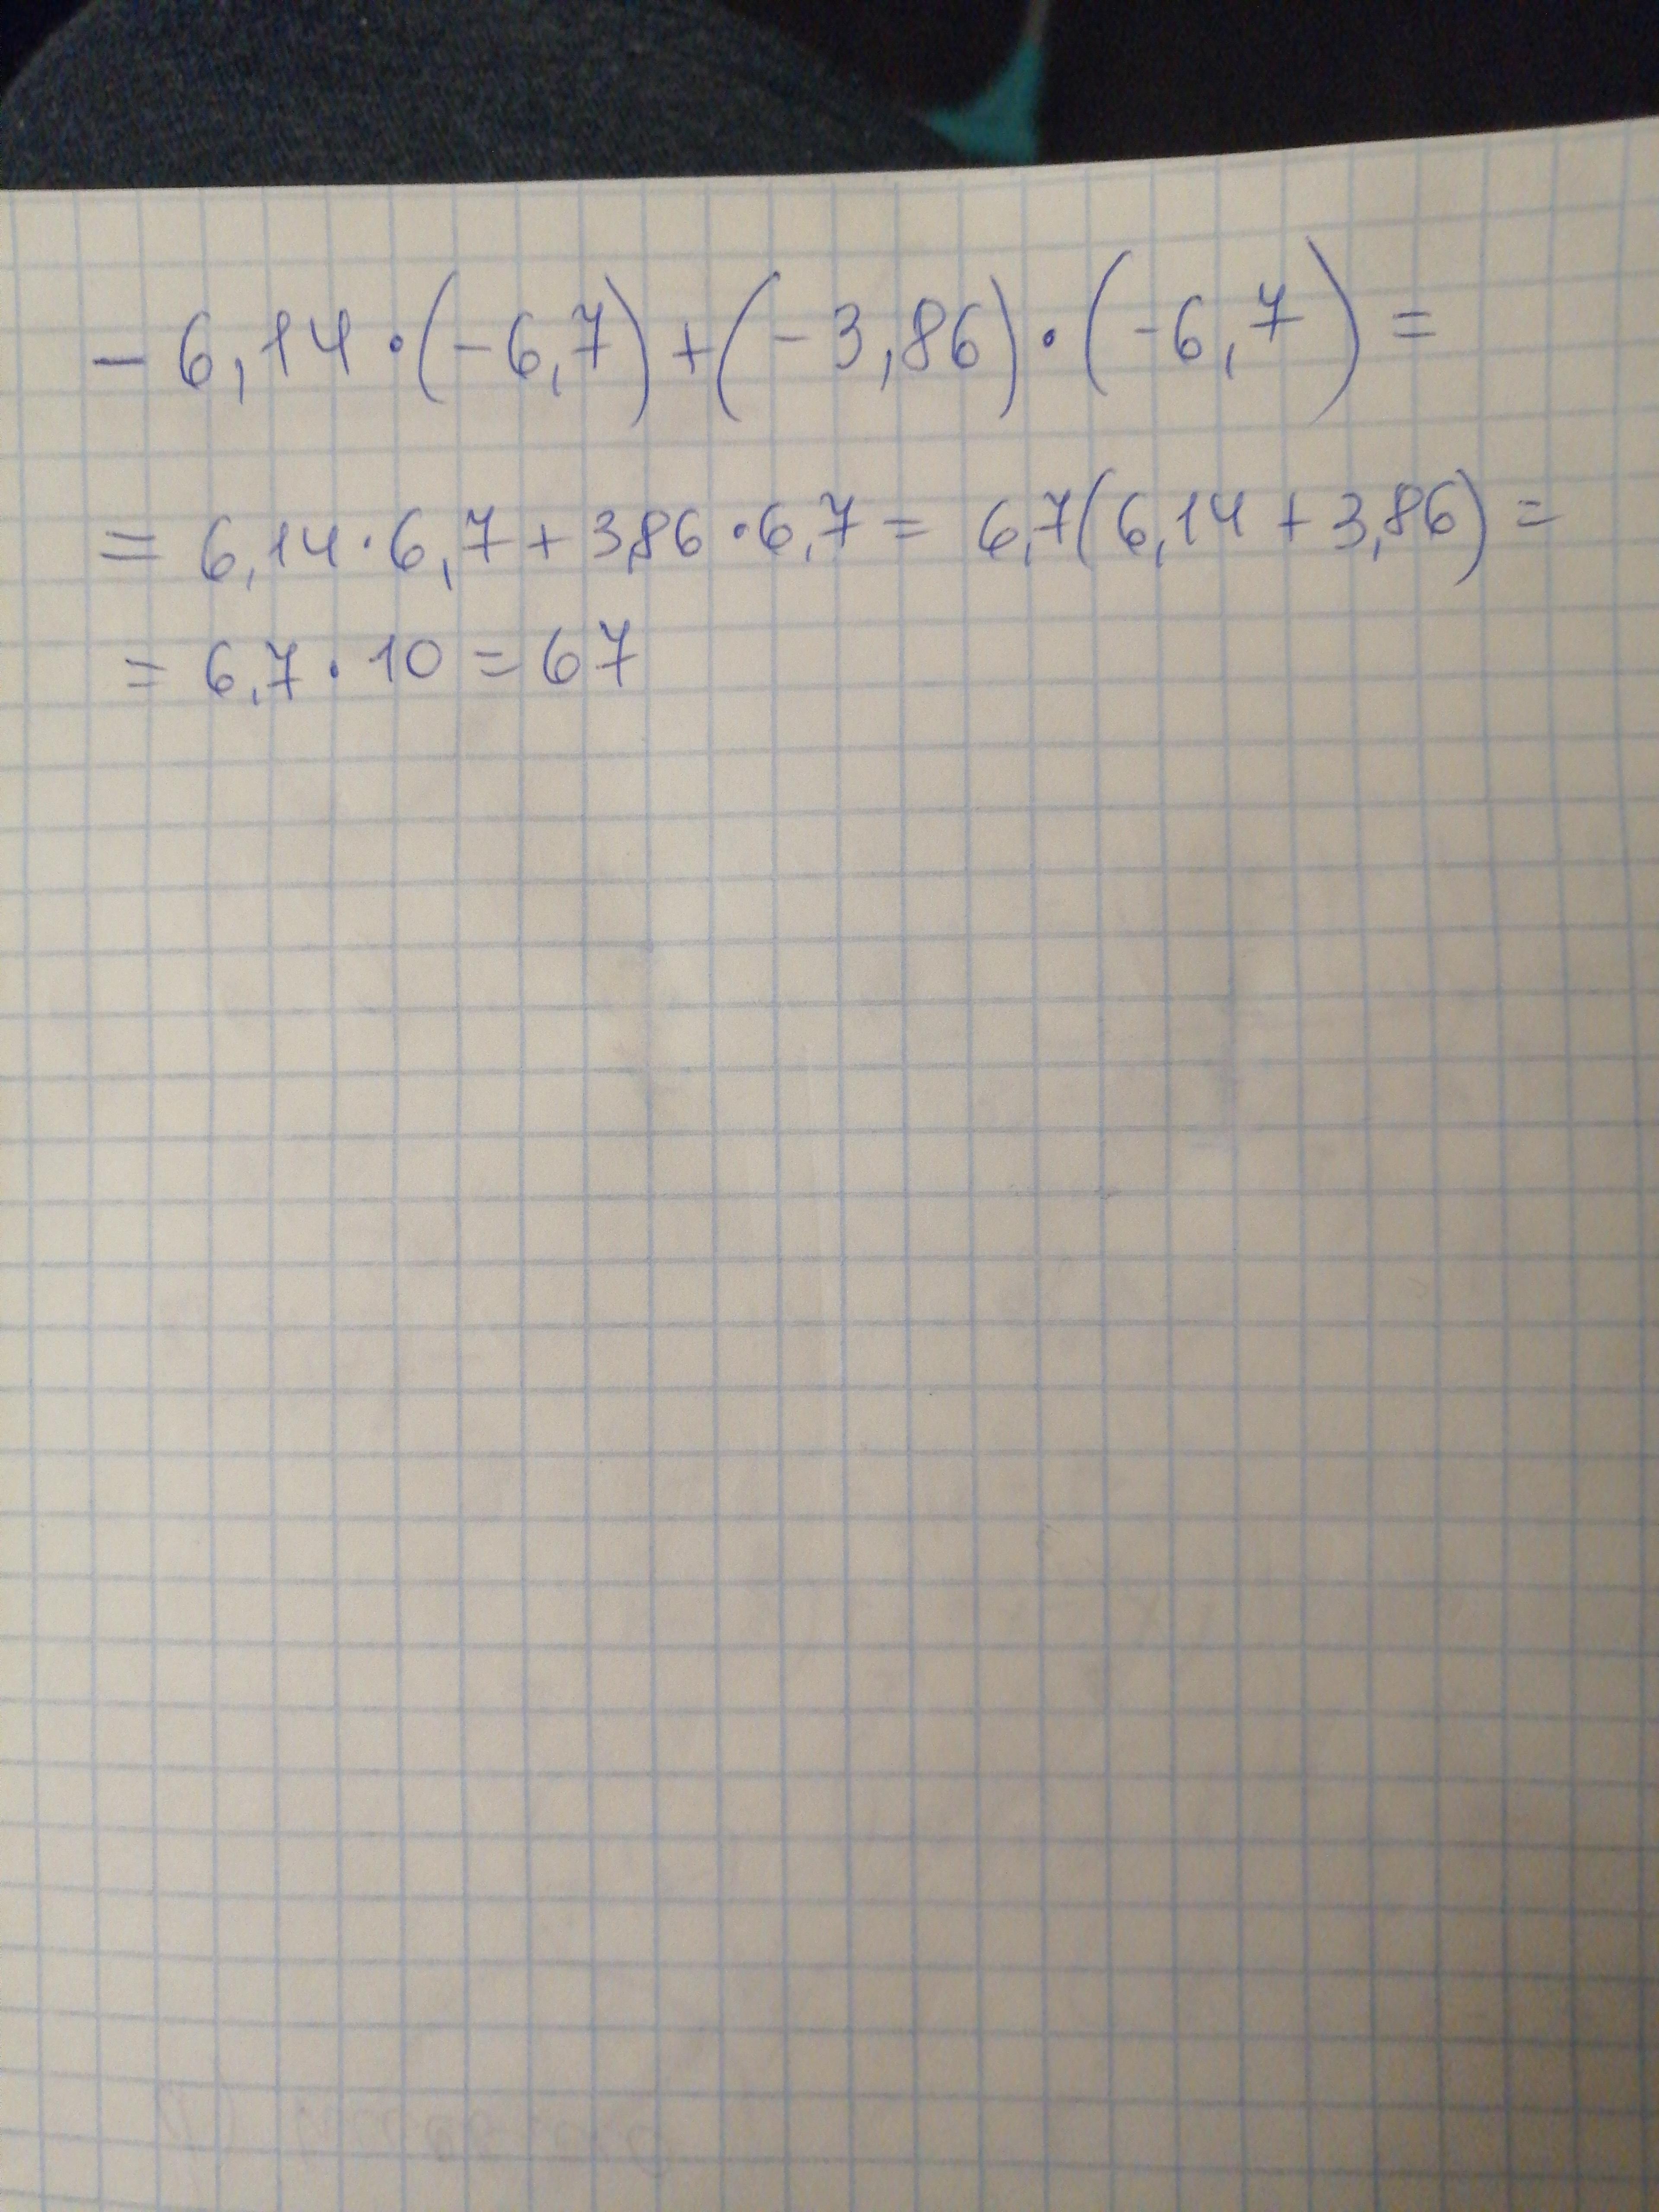 - 6,14 · (-6,7) + (-3,86) · (-6,7) =
= 6,14 · 6,7 + 3,86 · 6,7 = 6,7(6,14 + 3,86) =
= 6,7 · 10 = 67